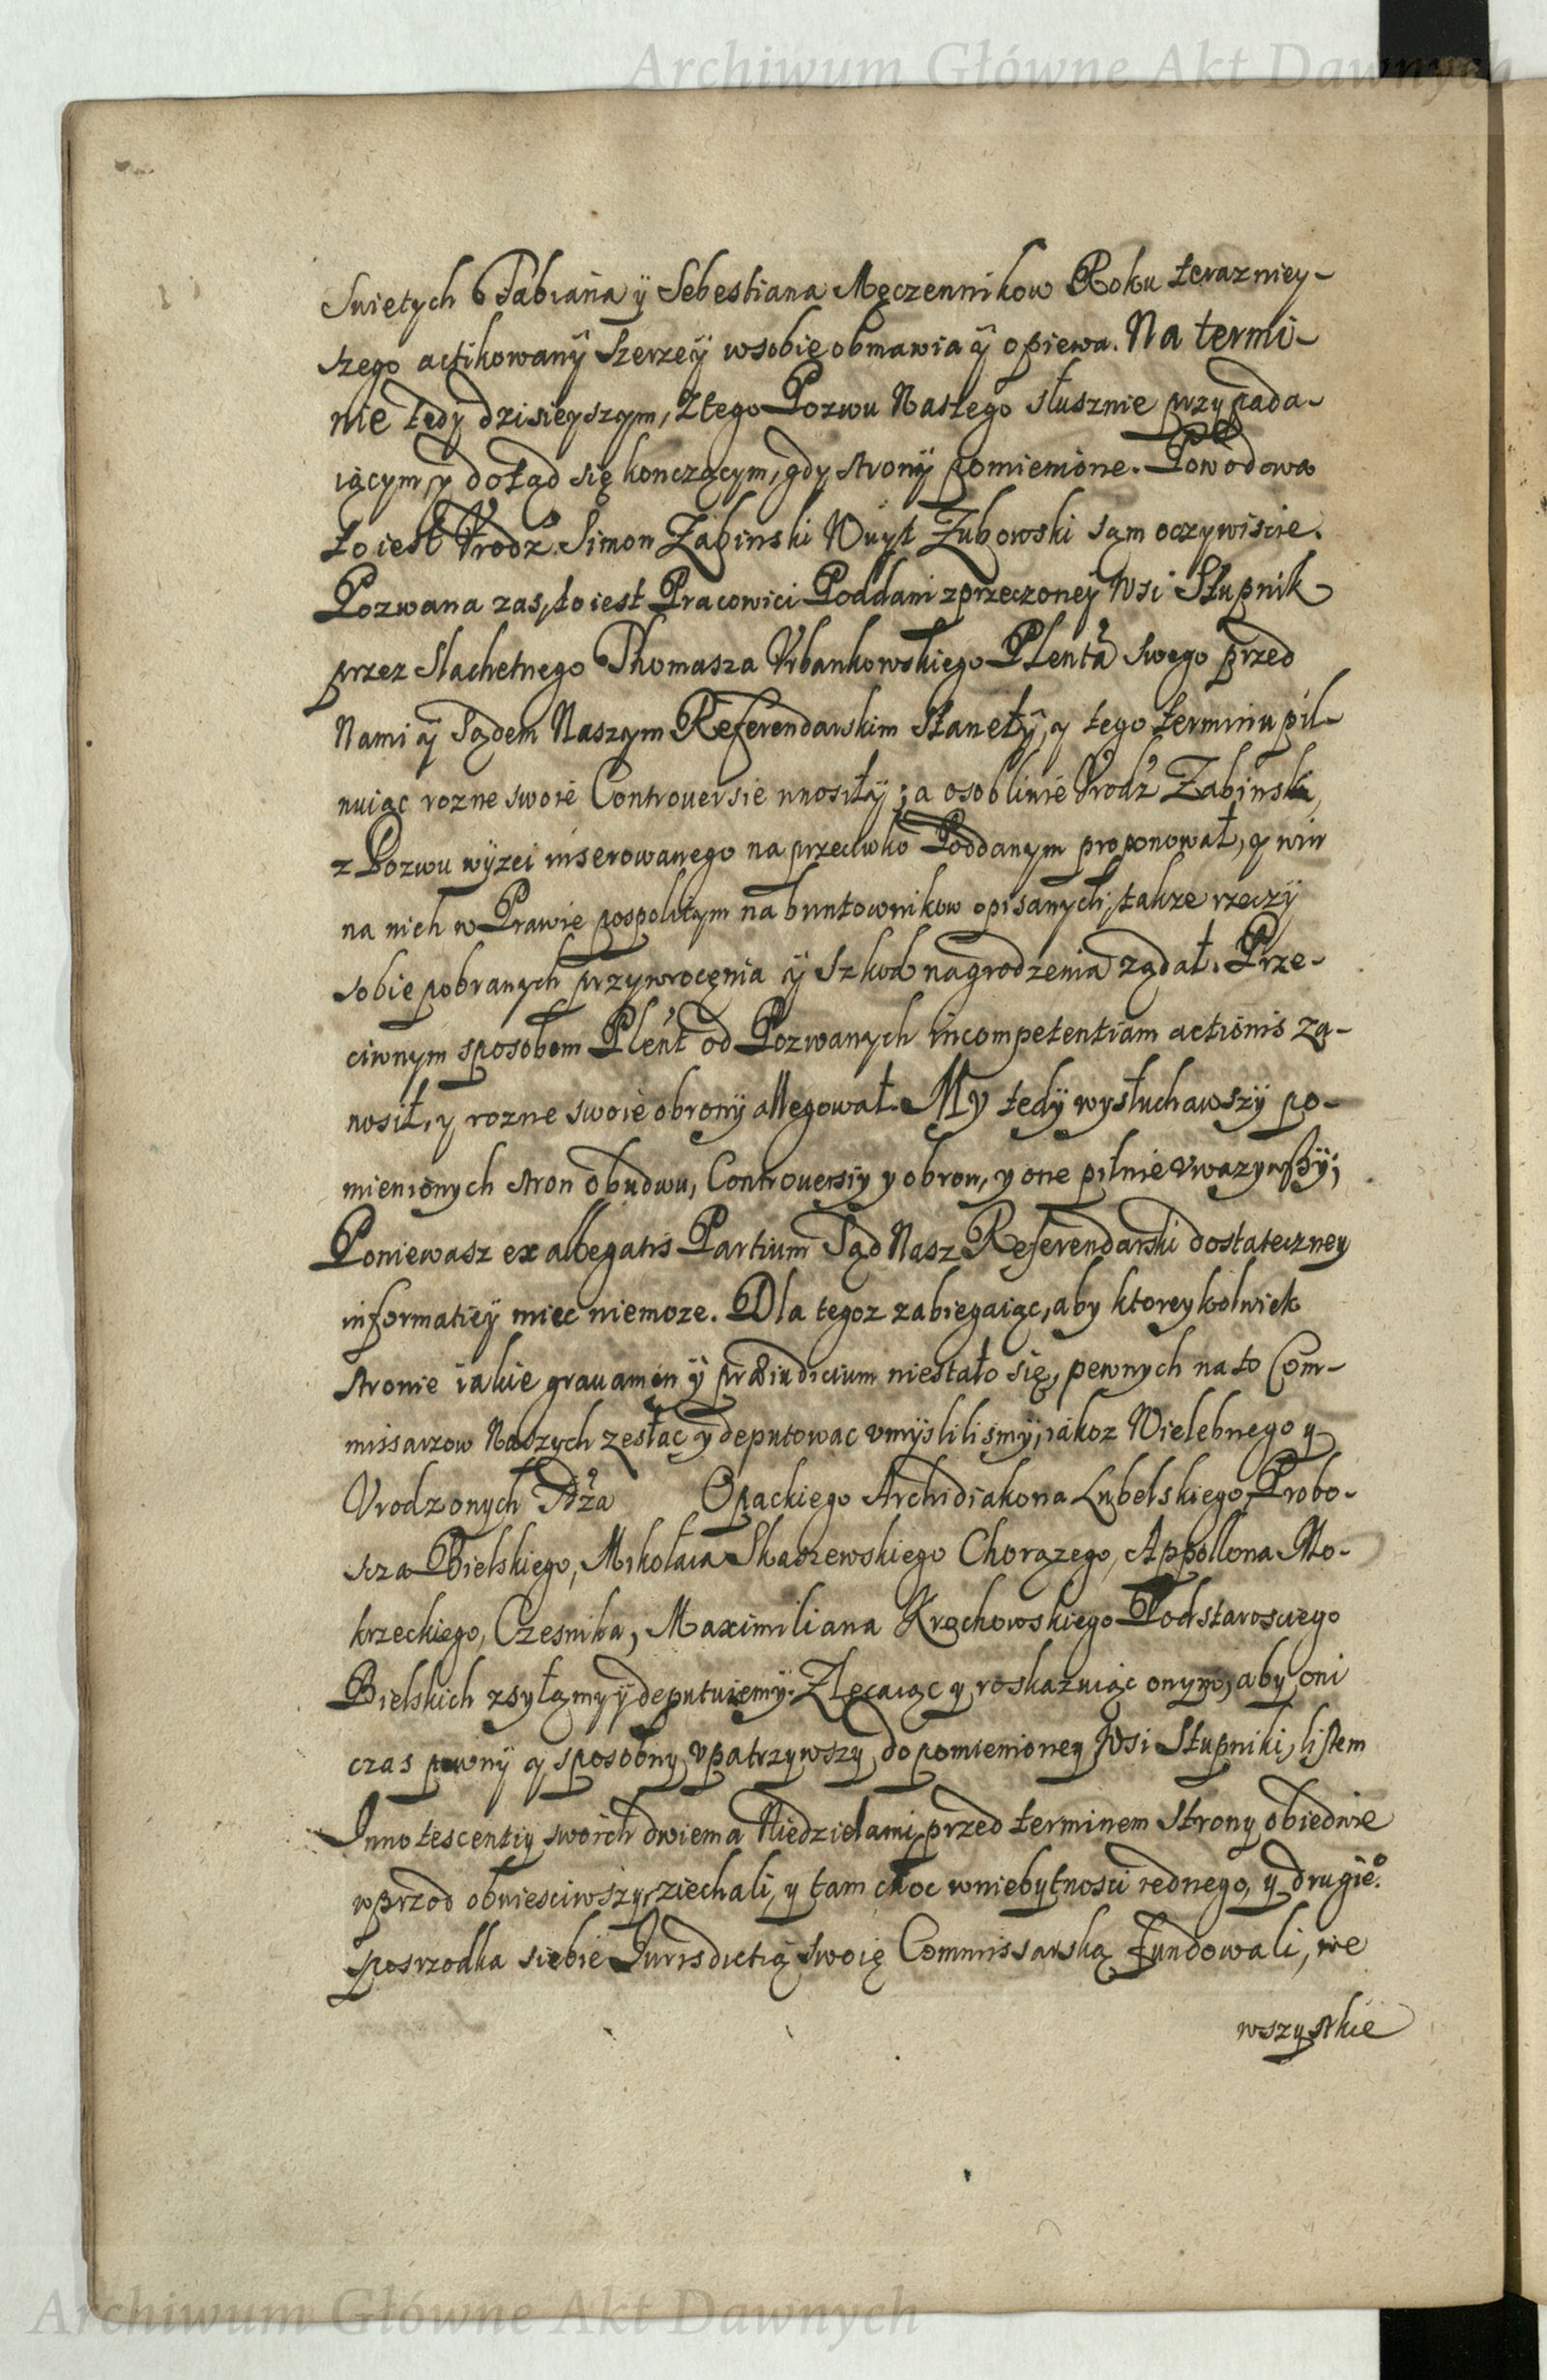 Archiwum Główne Akt Dawnych
Swietych Fabiana ÿ Sebestiana Męczennikow Roku terazniey-
szego actikowanÿ szerzeÿ wsobie obmawia ÿ opiewa. Na termi-
nie tedy dzisieyszym, Ztego Pozwu Naszego słusznie przypada-
iącym, y dotąd się konczącym, gdy stronÿ pomienione. Powodowa
to iest Vrodz. Simon Zabinski Wuyt Zubowski sam oczywiscie.
Pozwana zas, to iest Pracowici Poddani zprzeczoney Wsi Stupnik
przez Slachetnego Thomasza Vrbankowskiego Plenta swego przed
Nami ÿ Sądem Naszym Referendarskim Stanełÿ, y tego terminu pil-
nuiąc rozne swoie Controuersie wnosiłÿ; a osobliwie Vrodz Zabinski,
z Pozwu wÿzei inserowanego na przeciwko Poddanym proponował, y win
na nich w Prawie pospolitym na buntownikow opisanych, takze rzeczÿ
sobie pobranych przywrocęnia ÿ Szkod nagrodzenia ządał. Prze-
ciwnym sposobem Plent od Pozwanych incompetentiam actionis za-
nosił, y rozne swoie obronÿ allegował. My tedÿ wysłuchawszÿ po-
mienionych stron obudwu, Controuersiy y obron, y one pilnie vwazywszÿ;
Poniewasz ex allegatis Partium Sąd Nasz Referendarski dostateczney
informatieÿ miec niemoze. Dla tegoz zabiegaiąc, aby ktoreykolwiek
stronie iakie grauamen ÿ præiudicium niestało się, pewnych na to Com-
missarzow Naszych zesłac ÿ deputowac vmÿslilismÿ, iakoz Wielebnego y
Vrodzonych Xdza Opackiego Archidiakona Lubelskiego, Probo-
scza Bielskiego, Mikołaia Skaszewskiego Chorązego, Appollona Mo-
krzeckiego, Czesnika, Maximiliana Krochowskiego Podstarosciego
Bielskich zsyłamy ÿ deputuiemÿ. Zlecaiąc y roskazuiąc onym, aby oni
czas pewnÿ y sposobny vpatrzywszy, do pomienioney Wsi Stupniki, listem
Innotescentiy swoich dwiema Niedzielami przed terminem strony obiedwie
wprzod obwiesciwszy, ziechali, y tam choc wniebytnosci iednego, y drugieo.
posrzodka siebie Jurisdictią swoię Commissarską fundowali, we
wszystkie
Archiwum Główne Akt Dawnych